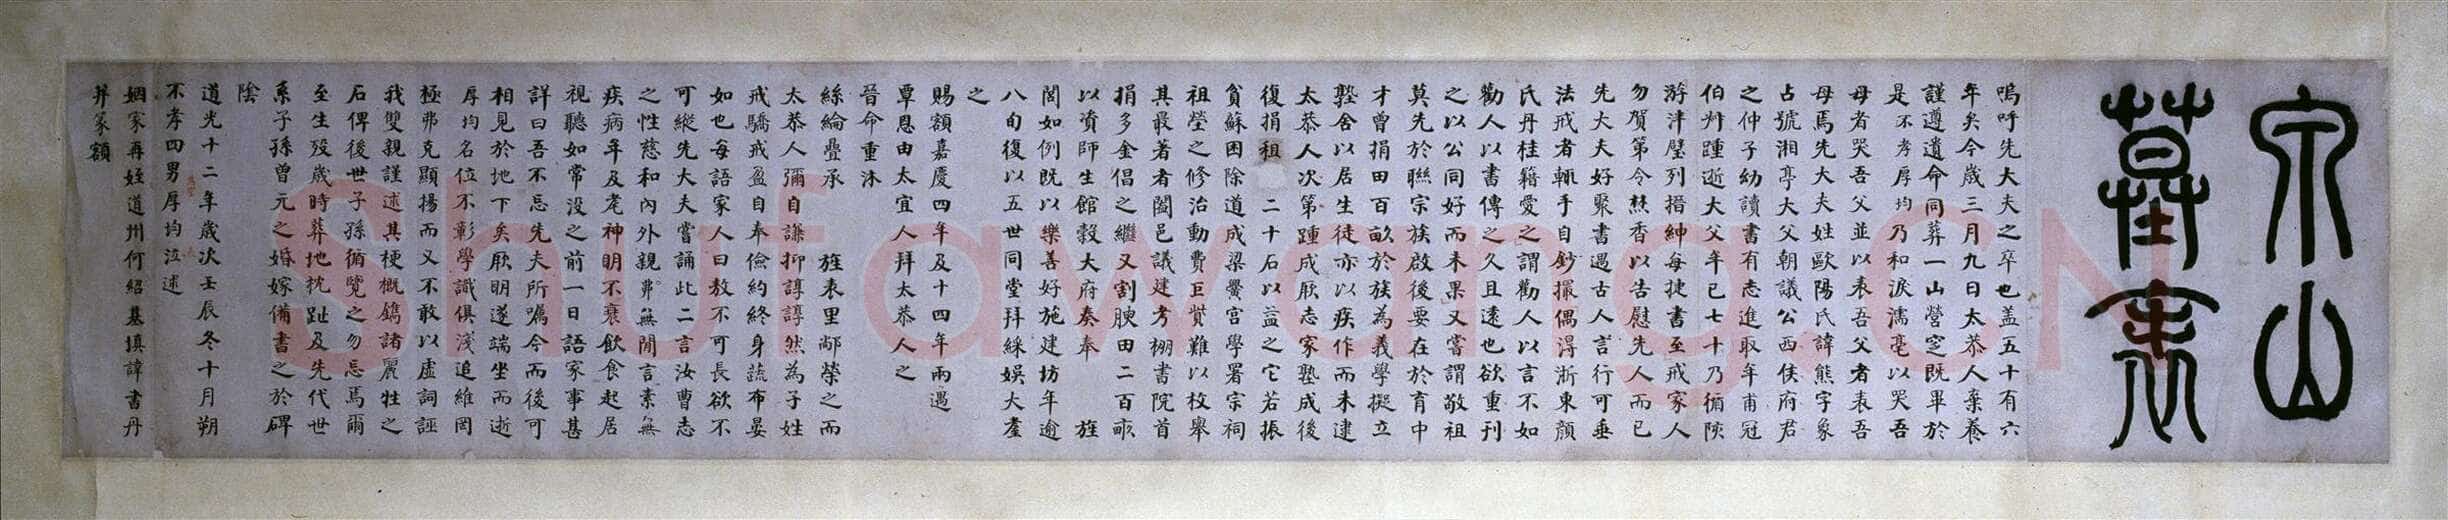 宗山
墓表
嗚呼先大夫之卒也蓋五十有六
年矣今歲三月九日太恭人棄養
謹遵遺命同葬一山營窆既畢於
是不孝厚均乃和淚濡毫以哭吾
母者哭吾父並以表吾父者表吾
母焉先大夫姓歐陽氏諱熊字象
占號湘亭大父朝議公西侯府君
之仲子幼讀書有志進取年甫冠
伯舛踵逝大父年已七十乃循陔
游泮璧列搢紳每捷書至戒家人
勿賀第令爇香以告慰先人而已
先大夫好聚書遇古人言行可垂
法戒者輒手自鈔撮偶淂浙東顏
氏丹桂籍愛之謂勸人以言不如
勸人以書傳之久且遠也欲重刊
之以公同好而未果又嘗謂敬祖
莫先於聯宗族啟後要在於育中
才曾捐田百畝於族為義學擬立
塾舍以居生徒亦以疾作而未逮
太恭人次第踵成厥志家塾成後
復捐租二十石以益之它若振
貧蘇困除道成梁黌宮學署宗祠
祖塋之修治動費巨貲難以枚舉
其最著者闔邑議建考棚書院首
捐多金倡之繼又割腴田二百畝
以資師生館穀大府奏奉 旌
閭如例既以樂善好施建坊年逾
八旬復以五世同堂拜綵娛大耋
之
賜額嘉慶四年及十四年兩遇
覃恩由太宜人拜太恭人之
晉命重沐
絲綸疊承 旌表里鄰榮之而
太恭人彌自謙抑諄諄然為子姓
戒驕戒盈自奉儉約終身蔬布晏
如也每語家人曰敖不可長欲不
可縱先大夫嘗誦此二言汝曹志
之性慈和內外親弗無閒言素無
疾病年及耄神明不衰飲食起居
視聽如常没之前一日語家事甚
詳曰吾不忘先夫所囑今而後可
相見於地下矣厥明遂端坐而逝
厚均名位不彰學識俱淺追維罔
極弗克顯揚而又不敢以虛詞誣
我雙親謹述其梗概鐫諸麗牲之
石俾後世子孫循覽之勿忘焉爾
至生歿歲時葬地坑趾及先代世
系子孫曾元之婚嫁備書之於碑
陰
道光十二年歲次壬辰冬十月朔
不孝四男厚均泣述
姻家再姪道州何紹基填諱書丹
并篆額
Shufawang.CN